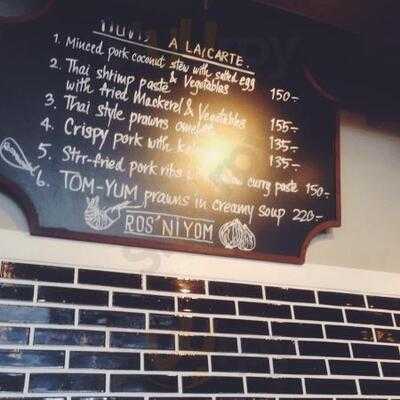 A LA CARTE.
1. Minced pork coconut stew with salted egg
& Vegetables 150.-
2. Thai shrimp paste
with fried Mackerel & Vegetables 155.-
3. Thai style prawns omelet 135.-
4. Crispy pork with 135.-
5. Stir-fried pork ribs curry paste 150.-
6. TOM-YUM prawns in creamy soup 220.-
ROS'NIYOM